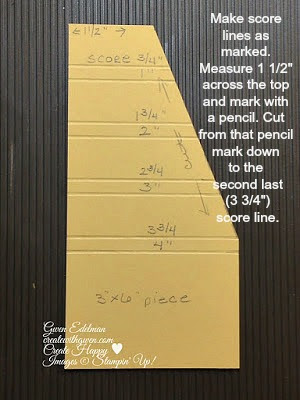 1 1/2"
Make score
lines as
marked.
Measure 1 1/2"
across the top
and mark with
a pencil. Cut
from that pencil
mark down
to the
second last
(3 3/4")
score line.
SCORE 3/4"
1"
1 3/4"
2"
cut
2 3/4
3"
3 3/4
4"
3" x 6" piece
Gwen Edelman
createwithgwen.com
Create Happy
Images © Stampin' Up!